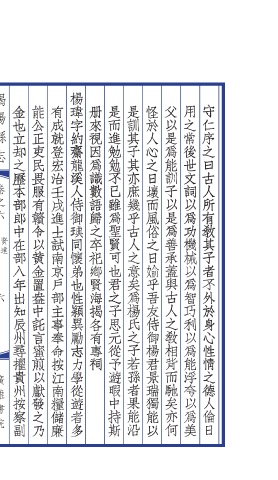 守仁序之曰古人所有敎其子者不外於身心性情之德人倫日
用之常後世文詞以爲功機械以爲智巧利以爲能浮夸以爲美
父以是爲能訓子以是爲善承蓋與古人之敎相背而馳矣亦何
怪於人心之日壞而風俗之日婾乎吾友侍御楊君景瑞獨能以
是訓其子其亦庶幾乎古人之意矣爲楊氏之子若孫者果能沿
是而進勉勉不已雖爲聖賢可也君之子思元從予遊暇中持斯
册來視因爲識數語歸之卒祀鄕賢海揭各有專祠
楊瑋字約齋龍溪人侍御琠同懷弟也性穎異勵志力學從遊者多
有成就登宏治壬戌進士試南京戶部主事奉命按江南糧儲廉
能公正吏民畏服有餽令以黃金置盎中託言蜜煎以獻發之乃
金也立却之歷本部郞中在部八年出知辰州尋擢貴州按察副
揭陽縣志
卷之六
賢達
六